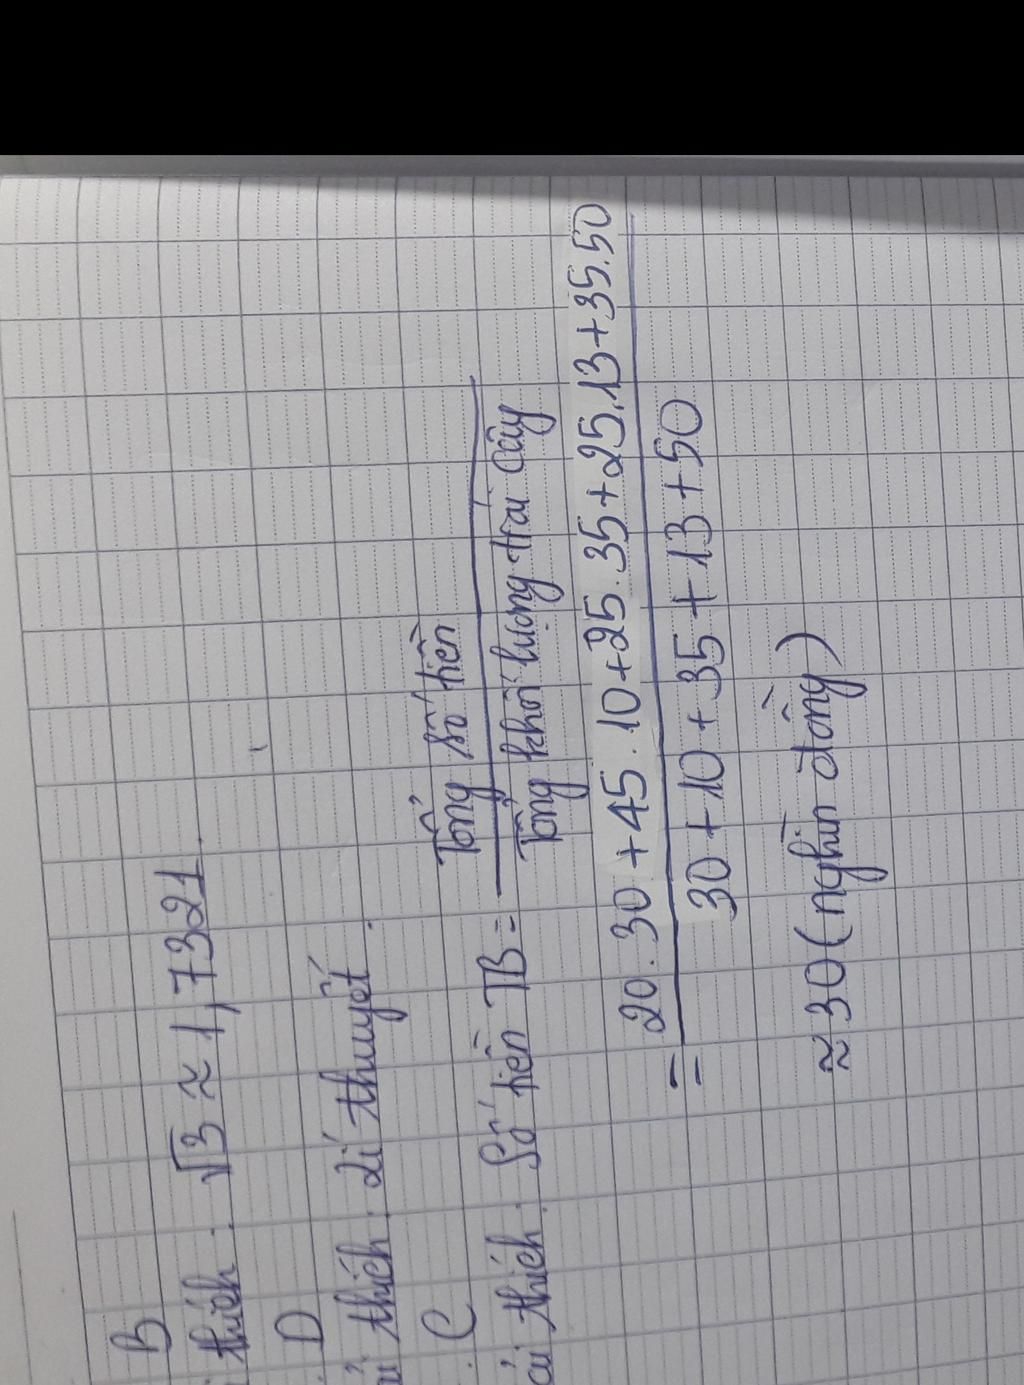 B
thích: √3 ≈ 1,7321.
D
thích: Lí thuyết.
C
thích: Số tiền TB = Tổng số tiền / Tổng khối lượng trái cây
= 20.30+45.10+25.35+25.13+35.50 / 30+10+35+13+50
≈ 30 (nghìn đồng)